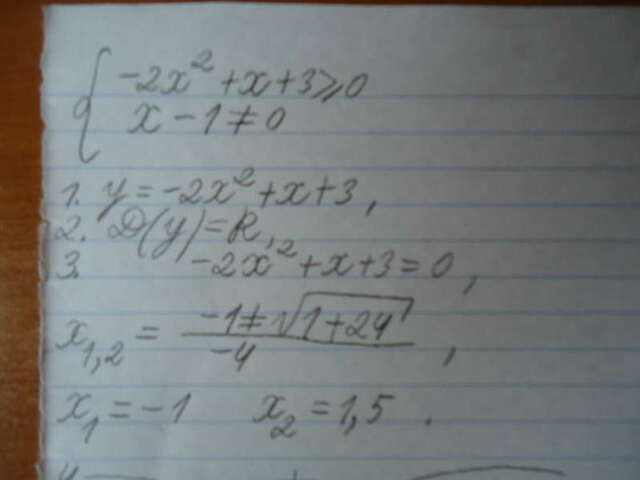 { -2x² + x + 3 ⩾ 0
x - 1 ≠ 0
1. y = -2x² + x + 3,
2. D(y) = R,
3. -2x² + x + 3 = 0,
x₁,₂ = (-1 ± √(1 + 24)) / -4,
x₁ = -1 x₂ = 1,5.